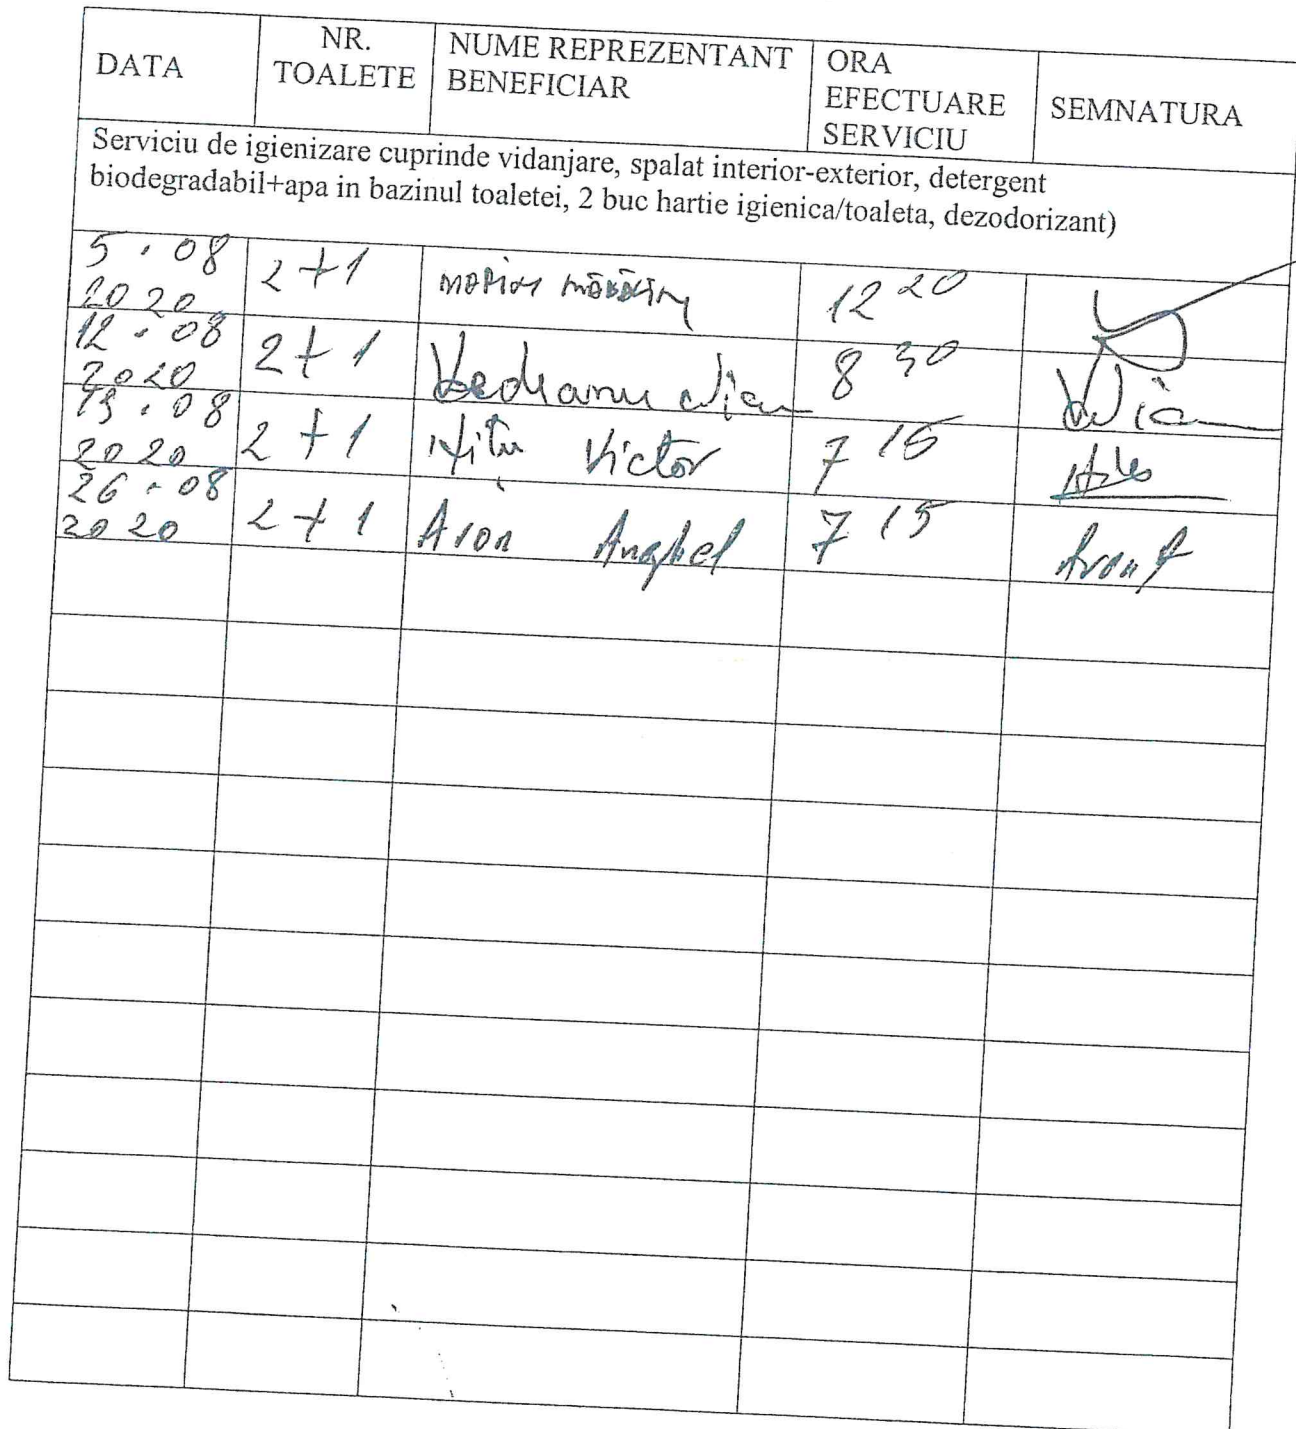 DATA
NR.
TOALETE
NUME REPREZENTANT
BENEFICIAR
ORA
EFECTUARE
SERVICIU
SEMNATURA
Serviciu de igienizare cuprinde vidanjare, spalat interior-exterior, detergent
biodegradabil+apa in bazinul toaletei, 2 buc hartie igienica/toaleta, dezodorizant)
5.08
2020
2+1
12 20
12.08
2020
2+1
8 30
2020
2+1
Nițu Victor
7 15
26.08
2020
2+1
Aron Anghel
7 15